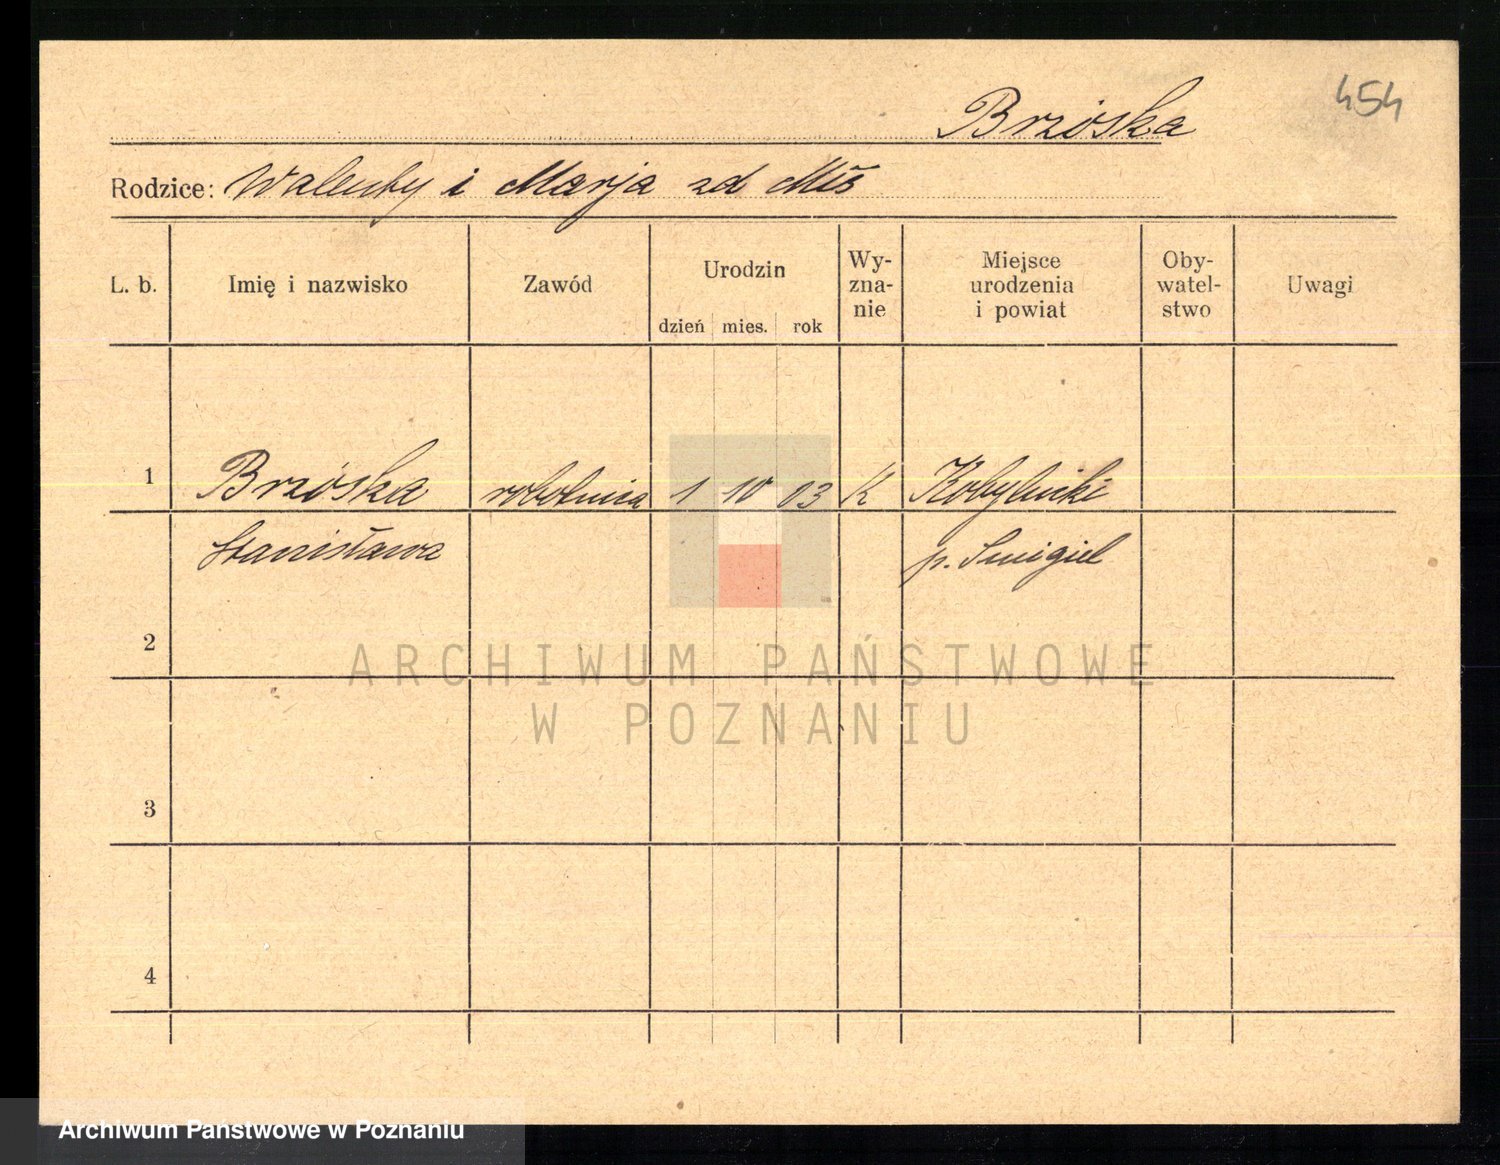 454
Brzóska
Rodzice: Walenty i Marja zd Miś
L. b. Imię i nazwisko Zawód Urodzin dzień mies. rok Wy- zna- nie Miejsce urodzenia i powiat Oby- watel- stwo Uwagi
1 Brzóska robotnica 1 10 03 K Kobylniki
Stanisława p. Śmigiel
2
ARCHIWUM PAŃSTWOWE
W POZNANIU
3
4
Archiwum Państwowe w Poznaniu